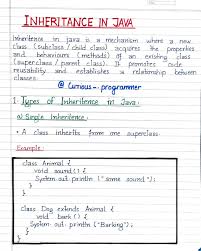 INHERITANCE IN JAVA
Inheritence in java is a mechanism where a new
class (subclass / child class) acquires the properties
and behaviours (methods) of an existing class
(superclass / parent class). It promotes code
reusability and establishes a relationship between
classes.
@ Curious_.programmer
1. Types of Inheritence in Java:
a) Single Inheritence:
• A class inherits from one superclass.
Example:
class Animal {
void sound () {
System.out.println ("some sound");
}
}
class Dog extends Animal {
void bark () {
System.out.println ("Barking");
}
}